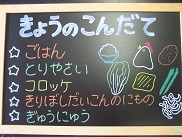 きょうのこんだて
☆ごはん
☆とりやさい
☆コロッケ
☆きりぼしだいこんのにもの
☆ぎゅうにゅう